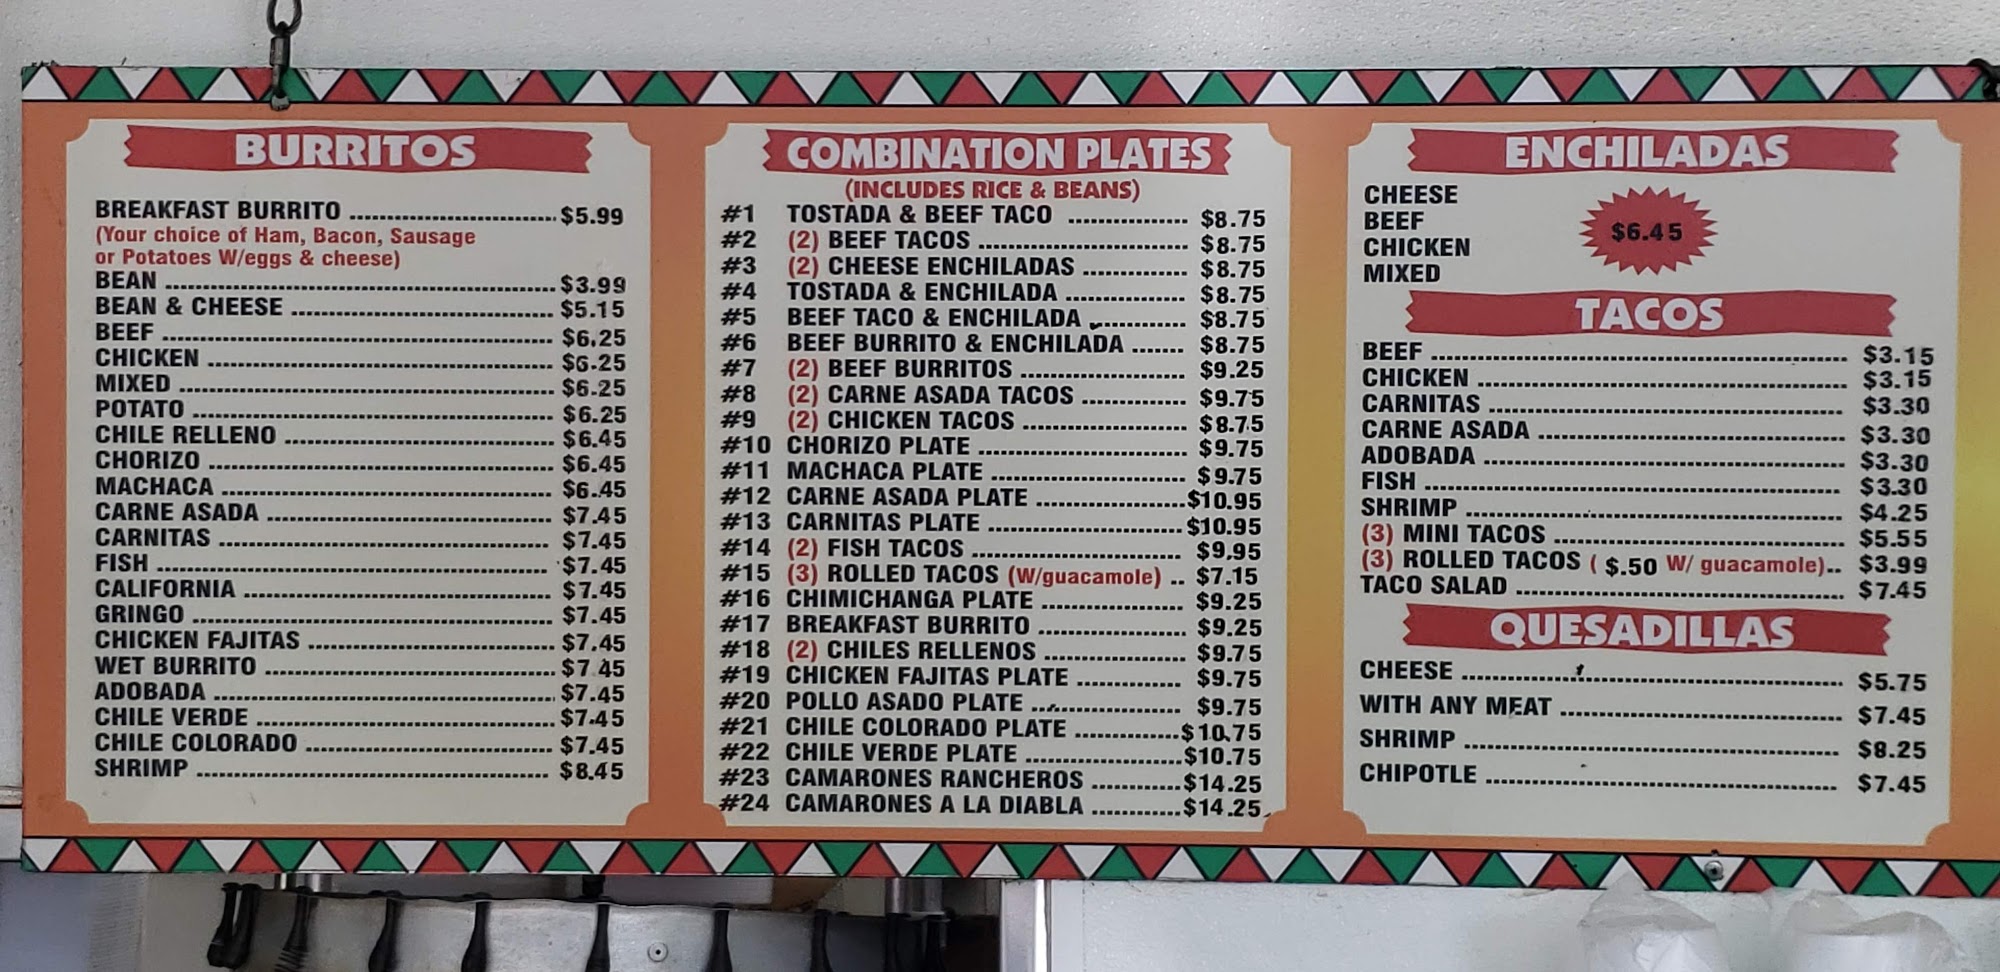 BURRITOS
BREAKFAST BURRITO ........ $5.99
(Your choice of Ham, Bacon, Sausage
or Potatoes W/eggs & cheese)
BEAN ........ $3.99
BEAN & CHEESE ........ $5.15
BEEF ........ $6.25
CHICKEN ........ $6.25
MIXED ........ $6.25
POTATO ........ $6.25
CHILE RELLENO ........ $6.45
CHORIZO ........ $6.45
MACHACA ........ $6.45
CARNE ASADA ........ $7.45
CARNITAS ........ $7.45
FISH ........ $7.45
CALIFORNIA ........ $7.45
GRINGO ........ $7.45
CHICKEN FAJITAS ........ $7.45
WET BURRITO ........ $7.45
ADOBADA ........ $7.45
CHILE VERDE ........ $7.45
CHILE COLORADO ........ $7.45
SHRIMP ........ $8.45
COMBINATION PLATES
(INCLUDES RICE & BEANS)
#1 TOSTADA & BEEF TACO ........ $8.75
#2 (2) BEEF TACOS ........ $8.75
#3 (2) CHEESE ENCHILADAS ........ $8.75
#4 TOSTADA & ENCHILADA ........ $8.75
#5 BEEF TACO & ENCHILADA ........ $8.75
#6 BEEF BURRITO & ENCHILADA ....... $8.75
#7 (2) BEEF BURRITOS ........ $9.25
#8 (2) CARNE ASADA TACOS ........ $9.75
#9 (2) CHICKEN TACOS ........ $8.75
#10 CHORIZO PLATE ........ $9.75
#11 MACHACA PLATE ........ $9.75
#12 CARNE ASADA PLATE ........ $10.95
#13 CARNITAS PLATE ........ $10.95
#14 (2) FISH TACOS ........ $9.95
#15 (3) ROLLED TACOS (W/guacamole) .. $7.15
#16 CHIMICHANGA PLATE ........ $9.25
#17 BREAKFAST BURRITO ........ $9.25
#18 (2) CHILES RELLENOS ........ $9.75
#19 CHICKEN FAJITAS PLATE ........ $9.75
#20 POLLO ASADO PLATE ........ $9.75
#21 CHILE COLORADO PLATE ........ $10.75
#22 CHILE VERDE PLATE ........ $10.75
#23 CAMARONES RANCHEROS ........ $14.25
#24 CAMARONES A LA DIABLA ........ $14.25
ENCHILADAS
CHEESE
BEEF
CHICKEN
MIXED
$6.45
TACOS
BEEF ........ $3.15
CHICKEN ........ $3.15
CARNITAS ........ $3.30
CARNE ASADA ........ $3.30
ADOBADA ........ $3.30
FISH ........ $3.30
SHRIMP ........ $4.25
(3) MINI TACOS ........ $5.55
(3) ROLLED TACOS ( $.50 W/ guacamole).. $3.99
TACO SALAD ........ $7.45
QUESADILLAS
CHEESE ........ $5.75
WITH ANY MEAT ........ $7.45
SHRIMP ........ $8.25
CHIPOTLE ........ $7.45